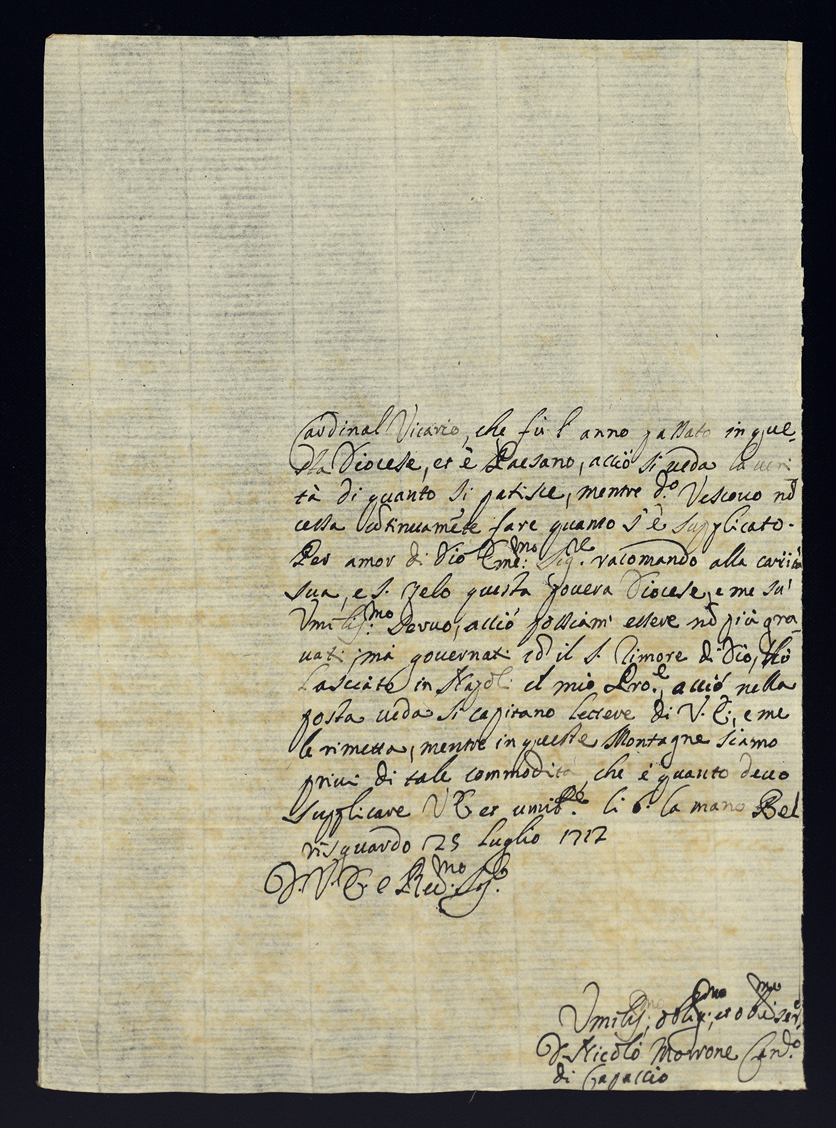 Cardinal Vicario, che fù l'anno passato in que-
sta Diocese, et è Paesano, acciò si veda la veri
tà di quanto si patisce, mentre d.º Vescovo nõ
cessa cõtinuamẽte fare quanto s'è supplicato.
Per amor di Dio Em̃.mo Sig.re racomando alla carità
sua, e S. Zelo questa povera Diocese, e me su'
Umiliss.mo Servo, acciò possiam' essere nõ più gra-
vati, mà governati cõ il S. Timore di Dio, Hò
lasciato in Nap.li il mio Pro.e, acciò nella
posta veda si capitano lettere di V. E., e me
le rimetta, mentre in queste Montagne siamo
privi di tale commodità, che è quanto devo
supplicare V E et umilm.te li b. la mano Bel
risguardo 25 Luglio 1712
D. V. E. e Rev.mo Sig.
Umiliss.mo, oblig.mo, et obl.mo ser.e
D. Nicolò Morrone Can.co
di Capaccio